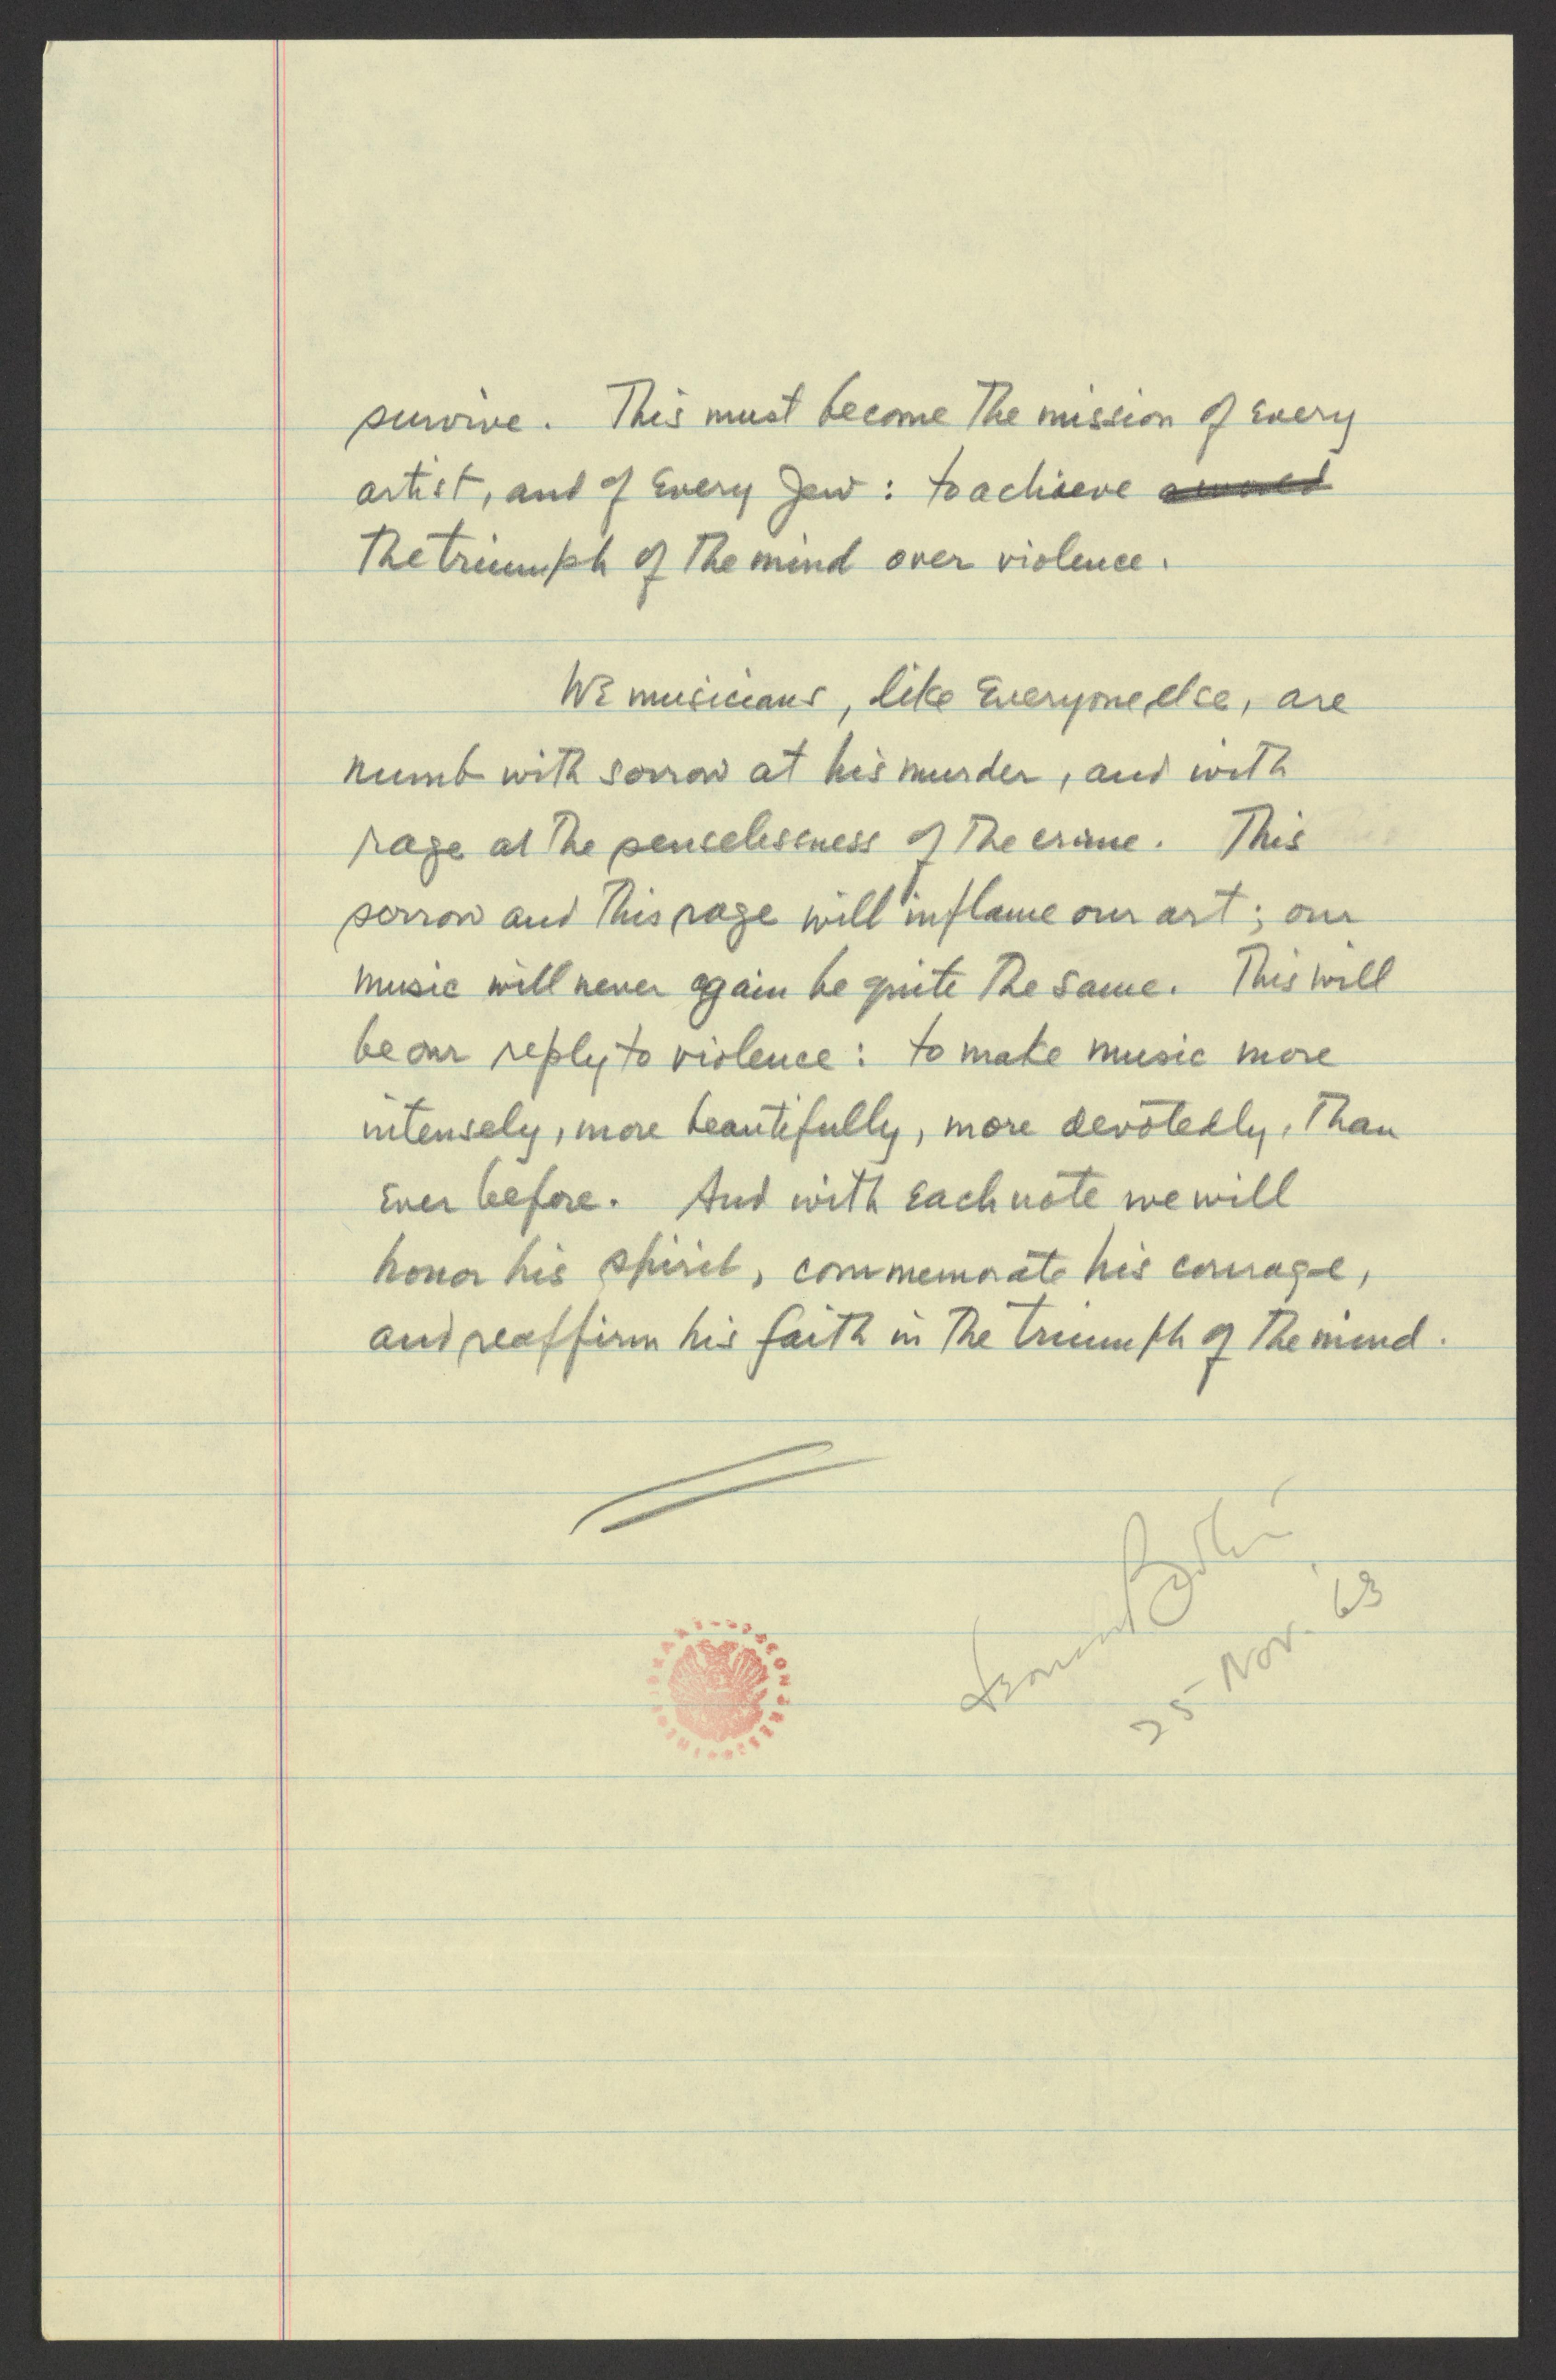 survive. This must become the mission of every
artist, and of every Jew: to achieve
the triumph of the mind over violence.
We musicians, like everyone else, are
numb with sorrow at his murder, and with
rage at the senselessness of the crime. This
sorrow and this rage will inflame our art; our
music will never again be quite the same. This will
be our reply to violence: to make music more
intensely, more beautifully, more devotedly, than
ever before. And with each note we will
honor his spirit, commemorate his courage,
and reaffirm his faith in the triumph of the mind.
Leonard Bernstein
25 Nov. '63